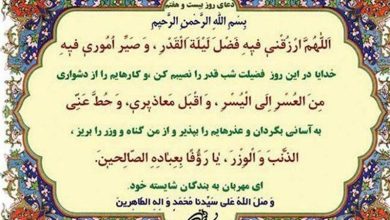 دعای روز بیست و هفتم
بِسْمِ اللَّهِ الرَّحْمنِ الرَّحِيمِ
اَللّهُمَّ ارْزُقْني فيهِ فَضْلَ لَيْلَةِ الْقَدْرِ، وَ صَيِّرْ اُموري فيهِ
خدایا در این روز فضیلت شب قدر را نصیبم کن ،و کارهایم را از دشواری
مِنَ الْعُسْرِ اِلَى الْيُسْرِ ، وَ اقْبَلْ مَعاذيري، وَ حُطَّ عَنّى
به آسانی بگردان و عذرهایم را بپذیر و از من گناه و وزر را بریز ،
الذَّنْبَ وَ الْوِزْرَ، يا رَؤُفًا بِعِبادِهِ الصّالِحينَ.
ای مهربان به بندگان شایسته خود.
وَ صَلِّ اللهُ عَلى سَيِّدِنا مُحَمَّد وَ الِه الطّاهِرينَ